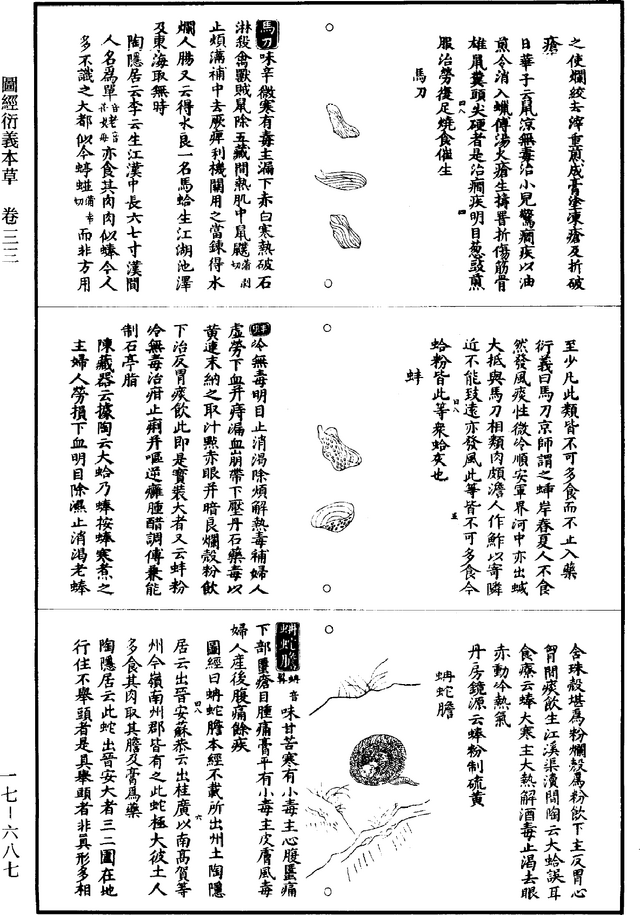 圖經衍義本草　卷三三
之使爛絞去滓重煎成膏塗凍瘡及折破
瘡
日華子云鼠涼無毒治小兒驚癇疾以油
煎令消入蠟傅湯火瘡生擣罯折傷筋骨
雄鼠糞頭尖硬者是治癇疾明目葱豉煎
服治勞復足燒食催生
馬刀
馬刀味辛微寒有毒主漏下赤白寒熱破石
淋殺禽獸賊鼠除五藏間熱肌中鼠䶌蒲剥切
止煩滿補中去厥痹利機關用之當鍊得水
爛人腸又云得水良一名馬蛤生江湖池澤
及東海取無時
陶隱居云李云生江漢中長六七寸漢間
人名爲單音善姥音母亦食其肉肉似蜯今人
多不識之大都似今蜌蒲幸切而非方用
至少凡此類皆不可多食而不止入藥
衍義曰馬刀京師謂之𧍧岸春夏人不食
然發風痰性微冷順安軍界河中亦出蜮
大抵與馬刀相類肉頗澹人作鮓以寄隣
近不能致遠亦發風此等皆不可多食今
蛤粉皆此等衆蛤灰也
蚌
蚌冷無毒明目止消渴除煩解熱毒補婦人
虛勞下血并痔漏血崩帶下壓丹石藥毒以
黃連末納之取汁點赤眼并暗良爛殼粉飲
下治反胃痰飲此即是寶裝大者又云蚌粉
冷無毒治疳止痢并嘔逆癰腫醋調傅兼能
制石亭脂
陳藏器云據陶云大蛤乃蜯按蜯寒煮之
主婦人勞損下血明目除濕止消渴老蜯
含珠殼堪爲粉爛殼爲粉飲下主反胃心
胷間痰飲生江溪渠瀆間陶云大蛤誤耳
食療云蜯大寒主大熱解酒毒止渴去眼
赤動冷熱氣
丹房鏡源云蜯粉制硫黃
蚺蛇膽
蚺蛇膽蚺音髯味甘苦寒有小毒主心腹䘌痛
下部䘌瘡目腫痛膏平有小毒主皮膚風毒
婦人産後腹痛餘疾
圖經曰蚺蛇膽本經不載所出州土陶隱
居云出晉安蘇恭云出桂廣以南高賀等
州今嶺南州郡皆有之此蛇極大彼土人
多食其肉取其膽及膏爲藥
陶隱居云此蛇出晉安大者三二圍在地
行住不舉頭者是真舉頭者非真形多相
一七－六八七